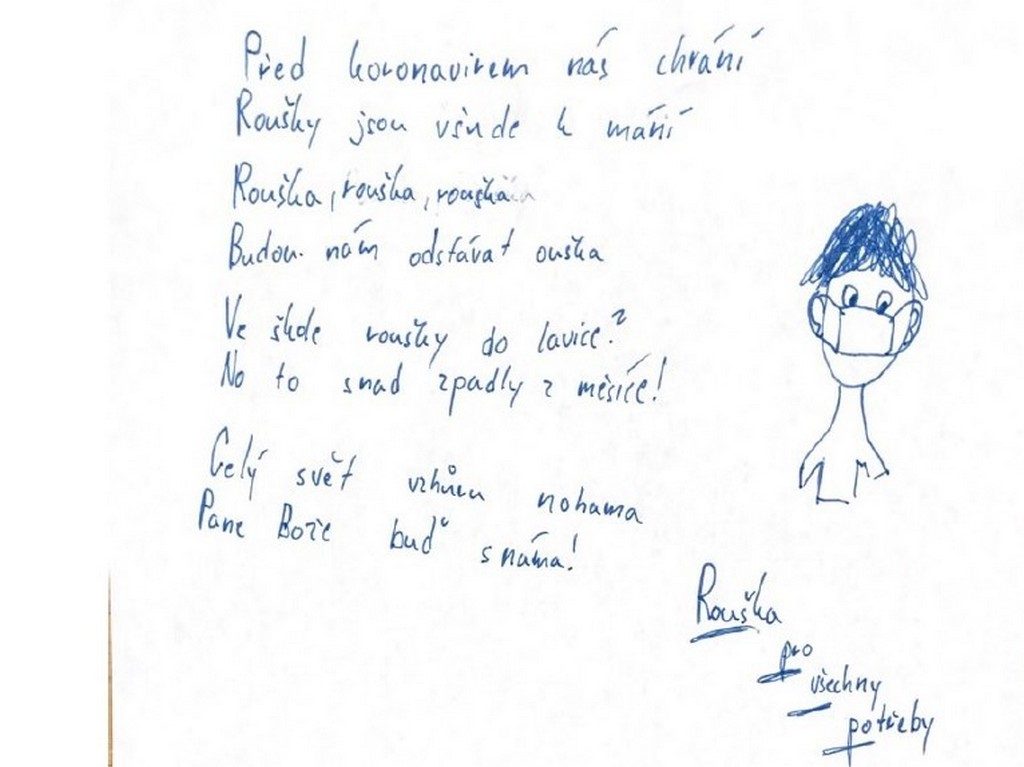 Před koronavirem nás chrání
Roušky jsou všude k mání
Rouška, rouška, rouška
Budou nám odstávat ouška
Ve škole roušky do lavice?
No to snad zpadly z měsíce!
Celý svět vzhůru nohama
Pane Bože buď s náma!
Rouška
pro
všechny
potřeby